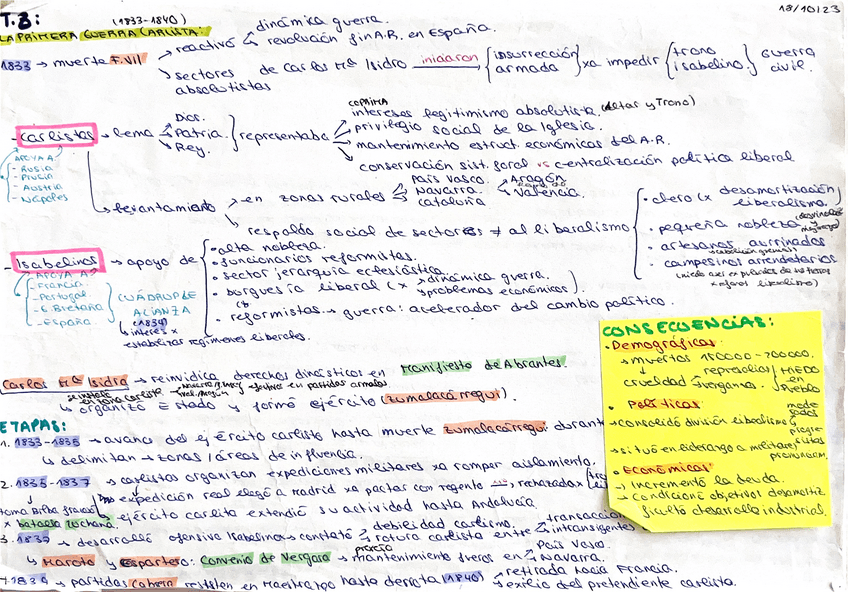 T.3:
(1833-1840)
18/10/23
LA PRIMERA GUERRA CARLISTA:
dinámica guerra.
reactivó revolución fin A.R. en España.
1833 → muerte F.VII
sectores absolutistas de Carlos Mª Isidro iniciaron insurrección armada xa impedir trono isabelino. Guerra civil.
- Carlistas → lema Dios. Patria. Rey. representaba
intereses legitimismo absolutista. (Altar y Trono)
privilegio social de la Iglesia.
mantenimiento estruct. económicas del A.R.
conservación sist. foral vs centralización política liberal
APOYA A
- Rusia
- Prusia
- Austria
- Nápoles
levantamiento → en zonas rurales País Vasco. Navarra. Cataluña Aragón Valencia.
respaldo social de sectores ≠ al liberalismo
• clero (x desamortización liberalismo.
• pequeña nobleza
• artesanos arruinados
• campesinos arrendatarios.
- Isabelinos → apoyo de
• alta nobleza.
• funcionarios reformistas.
• sector jerarquía eclesiástica.
• burguesía liberal (x dinámica guerra. problemas económicos).
• reformistas → guerra: acelerador del cambio político.
APOYA A
- Francia
- Portugal
- G. Bretaña
- España
CUÁDRUPLE ALIANZA
(1834)
interés x estabilizar regímenes liberales.
Carlos Mª Isidro → reinvidica derechos dinásticos en Manifiesto de Abrantes.
→ organizó Estado y formó ejército (Zumalacárregui).
ETAPAS:
1. 1833-1835 → avance del ejército carlista hasta muerte Zumalacárregui durant
→ delimitan → zonas/áreas de influencia.
2. 1835-1837 → carlistas organizan expediciones militares xa romper aislamiento.
expedición real llegó a Madrid xa pactar con regente rechazados
toma Bilbo fracasó
x batalla Luchana.
ejército carlista extendió su actividad hasta Andalucía.
3. 1837 → desarrolló ofensiva Isabelinos → constató debilidad carlismo. rotura carlista entre transacción intransigentes
→ Maroto y Espartero: Convenio de Vergara → mantenimiento fueros en País Vasco. Navarra.
1839 → partidas Cabrera resisten en Maestrazgo hasta derrota 1840)
retirada hacia Francia.
exilio del pretendiente carlista.
CONSECUENCIAS:
• Demográficas
→ muertos 150000-200000.
crueldad represalias venganza. MIEDO en Pueblo
• Políticas
→ consolidó división liberalismo
→ situó en liderazgo a militares
• Económicas
→ Incrementó la deuda.
→ Condicionó objetivos desamortiz.
dificultó desarrollo industrial.